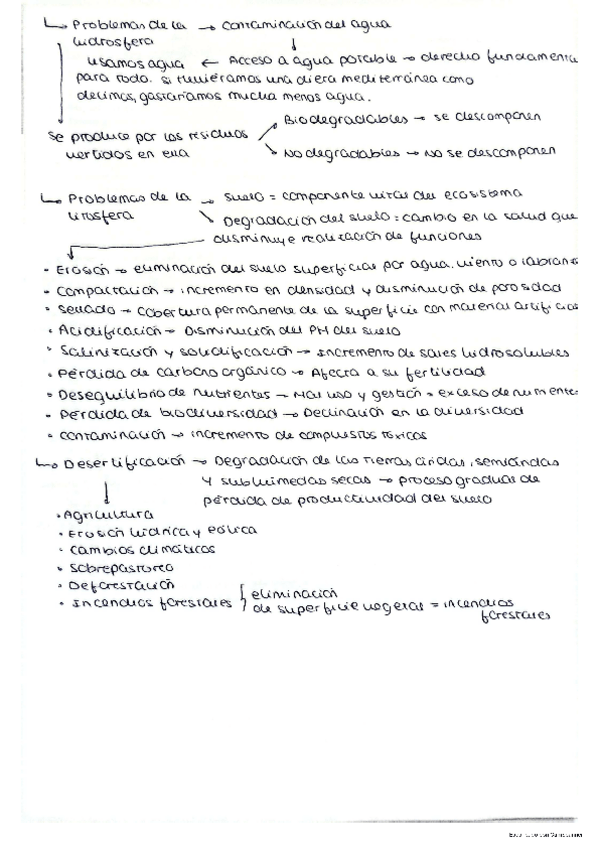 ↳ Problemas de la → contaminación del agua
hidrosfera ↓
usamos agua ← Acceso a agua potable → derecho fundamenta
para todo. si tuviéramos una dieta mediterránea como
decimos, gastaríamos mucha menos agua.
Biodegradables → se descomponen
se produce por los residuos
vertidos en ella
No degradables → No se descomponen
↳ Problemas de la → suelo = componente vital del ecosistema
litosfera ↘ Degradación del suelo = cambio en la salud que
disminuye realización de funciones
• Erosión → eliminación del suelo superficial por agua, viento o labranz
• Compactación → incremento en densidad y disminución de porosidad
• Sellado → cobertura permanente de la superficie con material artificia
• Acidificación → Disminución del PH del suelo
• Salinización y solidificación → Incremento de sales hidrosolubles
• Pérdida de carbono orgánico → Afecta a su fertilidad
• Desequilibrio de nutrientes → Mal uso y gestión = exceso de nutriente
• Pérdida de biodiversidad → Declinación en la diversidad
• contaminación → incremento de compuestos tóxicos
↳ Desertificación → Degradación de las tierras áridas, semiáridas
↓ y subhúmedas secas → proceso gradual de
pérdida de productividad del suelo
• Agricultura
• Erosión hídrica y eólica
• Cambios climáticos
• Sobrepastoreo
• Deforestación
• Incendios forestales { eliminación
de superficie vegetal = incendios
forestales